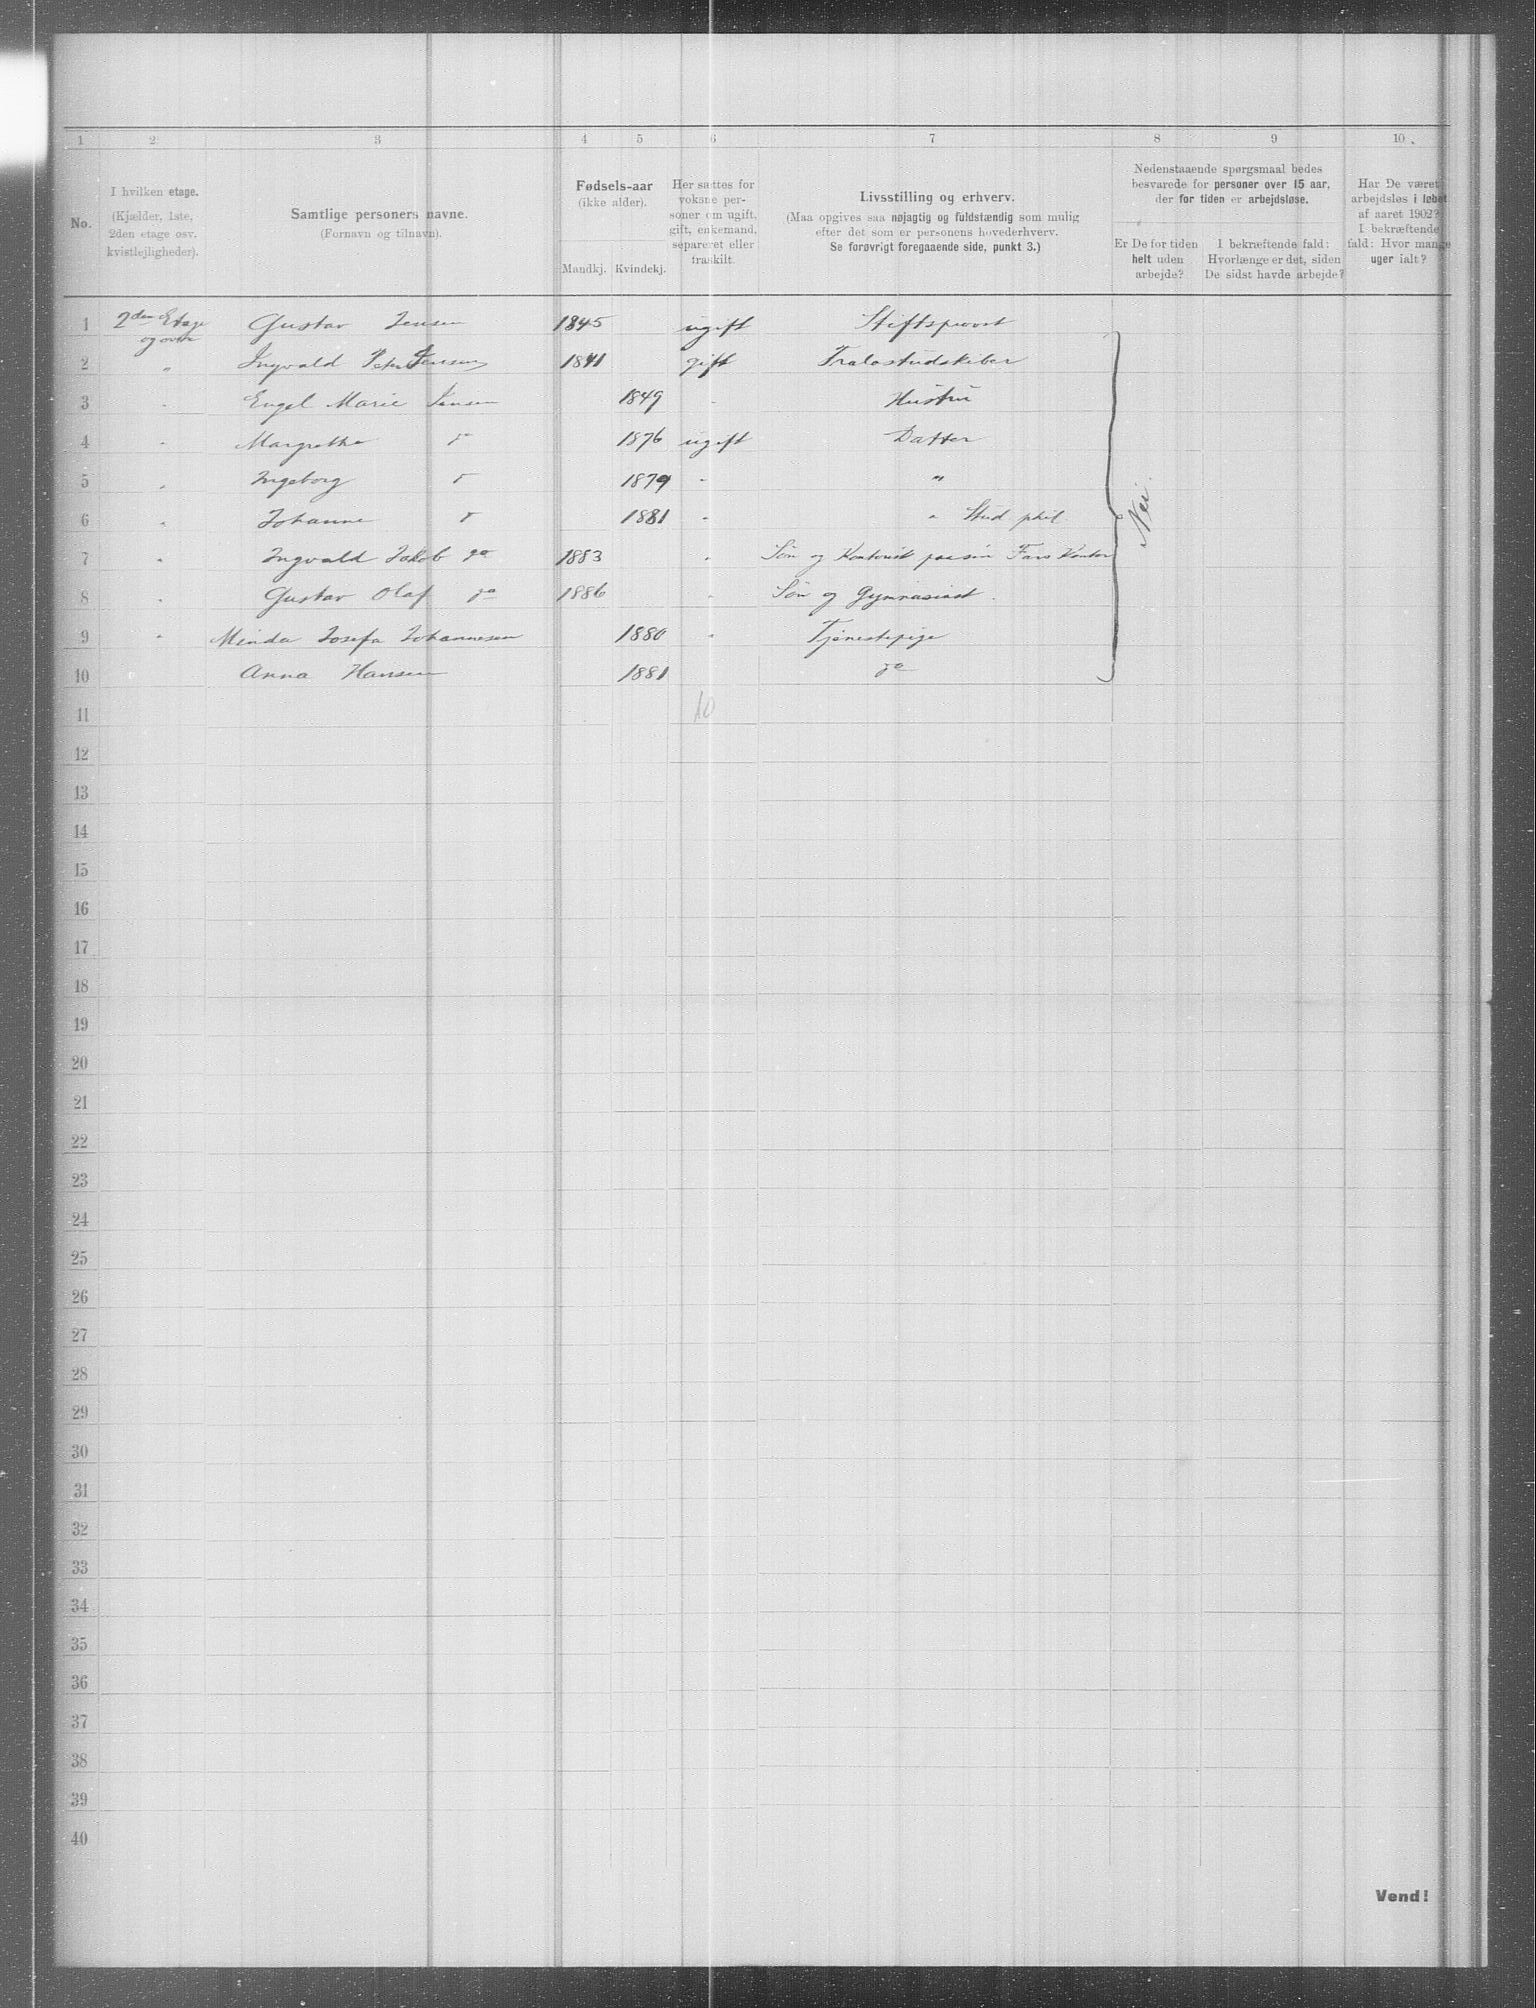 1 2 3 4 5 6 7 8 9 10
No.
I hvilken etage.
(Kjælder, 1ste,
2den etage osv.
kvistlejligheder).
Samtlige personers navne.
(Fornavn og tilnavn).
Fødsels-aar
(ikke alder).
Mandkj. Kvindekj.
Her sættes for
voksne per-
soner om ugift,
gift, enkemand,
separeret eller
fraskilt.
Livsstilling og erhverv.
(Maa opgives saa nøjagtig og fuldstændig som mulig
efter det som er personens hovederhverv.
Se forøvrigt foregaaende side, punkt 3.)
Nedenstaaende spørgsmaal bedes
besvarede for personer over 15 aar,
der for tiden er arbejdsløse.
Er De for tiden
helt uden
arbejde?
I bekræftende fald:
Hvorlænge er det, siden
De sidst havde arbejde?
Har De været
arbejdsløs i løbet
af aaret 1902?
I bekræftende
fald: Hvor mange
uger ialt?
1 2den Etage Gustav Jensen 1845 ugift Stiftsprovst
og
2 " Ingvald Peter Jensen 1841 gift
3 " Engel Marie Jensen 1849 " Hustru
4 " Margrethe do 1876 ugift Datter
5 " Ingeborg do 1879 " "
6 " Johanne do 1881 " " Stud phil
7 " Ingvald Jakob do 1883 " Søn og Kontorist paa sin Fars Kontor
8 " Gustav Olaf do 1886 " Søn og Gymnasiast.
9 " Minda Josefa Johannesen 1880 " Tjenestepige
10 Anna Hansen 1881 do
Nei.
11 10
12
13
14
15
16
17
18
19
20
21
22
23
24
25
26
27
28
29
30
31
32
33
34
35
36
37
38
39
40
Vend!